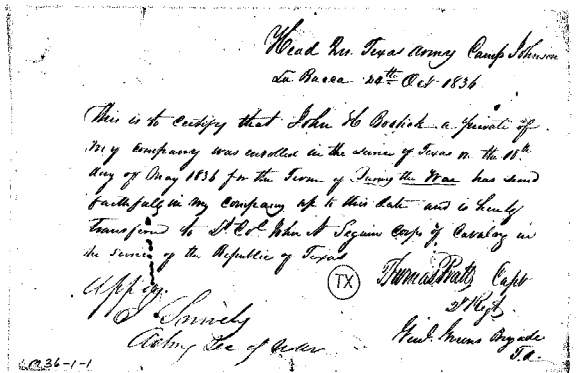 Head Qrs. Texas Army Camp Johnson
La Bacca 24th Oct 1836
This is to certify that John H Bostick a private of
my company was enrolled in the service of Texas on the
day of May 1836 for the Term of During the War has served
faithfully in my company up to this date and is hereby
transfered to Lt Col John N Seguin Corps of Cavalry in
the service of the Republic of Texas
Thomas Pratt Capt
TX
2d Regt
Appr
Genl. Greens Brigade
T.A.
J. Snively
Acting Sec of War
36-1-1